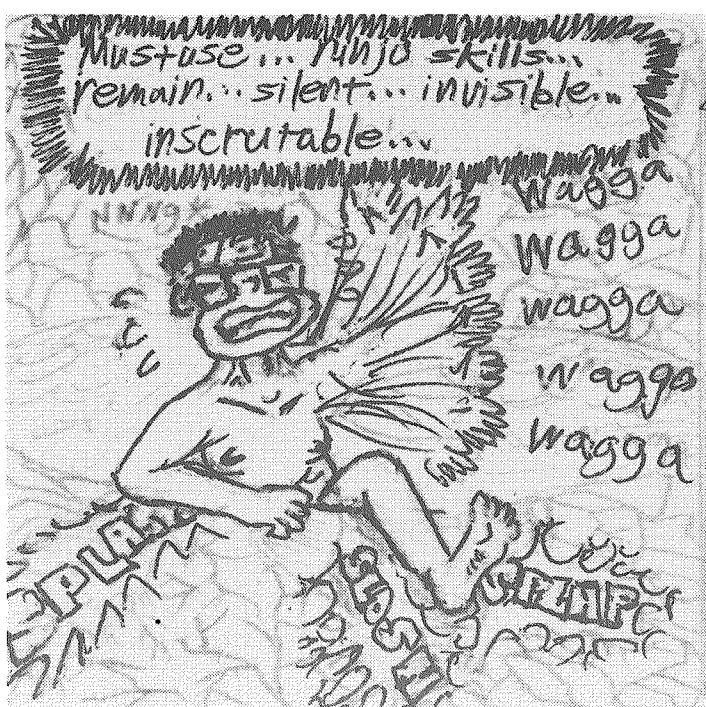 Must use... ninjo skills...
remain... silent... invisible...
inscrutable...
wagga
NNNgk
wagga
wagga
wagga
wagga
SPLASH
SLOSH
SFLAP